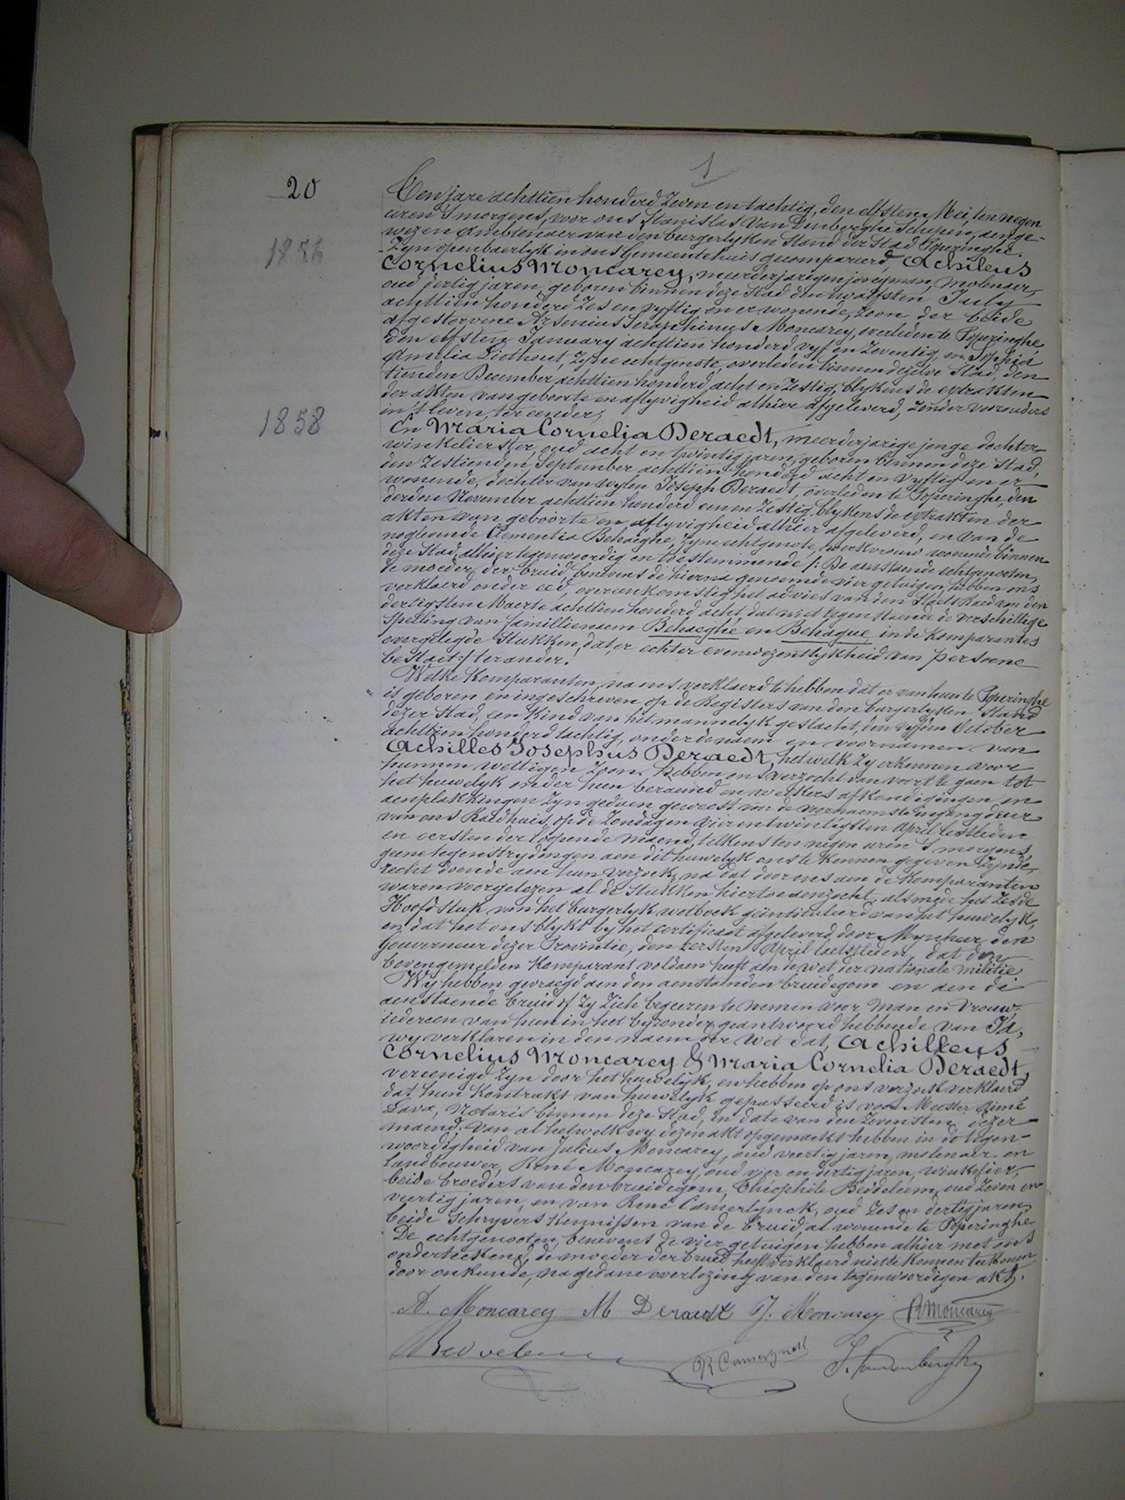 1
20
1856
1858
Een jare achttien honderd zeven en tachtig, den elfsten Mei, ten negen
uren 's morgens, voor ons Stanislas Van Denberghe Schepen, aenge-
wezen Ambtenaer van den burgerlyken Stand der Stad Poperinghe.
Zyn openbaerlyk in ons Gemeentehuis gecompareerd, Achilleus
Cornelius Moncarey, meerderjarigen jongman, molenaer,
oud dertig jaren, geboren binnen deze Stad den July
achttien honderd zes en vyftig en er wonende, zoon der beide
afgestorvene Arsenius Seraphinus Moncarey, overleden te Poperinghe
den elfsten January achttien honderd vyf en zeventig, en Sophia
Amelia zyne echtgenote, overleden binnen dezelve Stad, den
tienden December achttien honderd acht en zestig, blykens de extrakten
der akten van geboorte en aflyvigheid alhier afgeleverd, zonder voorouders
in 't leven, ter eender;
En Maria Cornelia Deraedt, meerderjarige jonge dochter
winkelierster, oud acht en twintig jaren, geboren binnen deze Stad,
den zestienden September achttien honderd acht en vyftig en er
wonende, dochter van wylen Joseph Deraedt, overleden te Poperinghe, den
derden November achttien honderd een en zestig, blykens de extrakten der
akten van geboorte en aflyvigheid alhier afgeleverd, en van de
nog levende Clementia Behaeghe, zyne echtgenote, werkvrouw wonende binnen
deze Stad, alhier tegenwoordig en toestemmende /: De aenstaende echtgenoten,
de moeder der bruid, benevens de hierna genoemde vier getuigen, hebben ons
verklaerd onder eed, overeenkomstig het advies van den Staets Raed van den
dertigsten Maerte achttien honderd acht, dat niet tegenstaende de verschillige
spelling van familienaem Behaeghe en Behague in de komparantes
overgelegde stukken, dat er echter evenwezentlykheid van persoone
bestaet: ter ander.
Welke Komparanten, na ons verklaerd te hebben dat er van hun te Poperinghe
is geboren en ingeschreven op de Registers van den burgerlyken Stand
dezer Stad, een Kind van het mannelyk geslacht, den October
achttien honderd tachtig, onder de naem en voornamen van
Achilles Josephus Deraedt, hetwelk zy erkennen voor
hunnen wettigen zoon. Hebben ons verzocht van voort te gaen tot
het huwelyk onder hun beraemd en welkers afkondigingen en
aenplakkingen zyn gedaen geweest voor de voornaemste Ingangdeur
van ons Raedhuis, op de zondagen vier en twintigsten April laetstleden
en eersten der loopende maend, telkens ten negen uren 's morgens,
geene tegenstrydingen aen dit huwelyk ons te kennen gegeven zynde,
recht doende aen hun verzoek, na dat door ons aen de Komparanten
waren voorgelezen al de Stukken hiertoe vereischt, alsmede het zesde
Hoofdstuk van het burgerlyk wetboek geintituleerd van het huwelyk,
en dat het ons blykt by het certificaet afgeleverd door Mynheer den
Gouverneur dezer Provintie, den eersten April laetstleden, dat den
bovengemelden Komparant voldaen heeft aen de wet der nationale militie
Wy hebben gevraegd aen den aenstaenden bruidegom en aen de
aenstaende bruid of zy zich begeeren te nemen voor Man en Vrouw
iedereen van hun in het byzonder geantwoord hebbende van Ja,
wy verklaren in den naem der Wet dat, Achilleus
Cornelius Moncarey & Maria Cornelia Deraedt,
vereenigd zyn door het huwelyk, en hebben op ons verzoek verklaerd
dat hun Kontrakt van huwelyk gepasseerd is voor Meester Aimé
Lava, Notaris binnen deze Stad, in date van den zevensten dezer
maend. Van al hetwelk wy dezen akt opgemaekt hebben in de tegen-
woordigheid van Julius Moncarey, oud veertig jaren, molenaer en
Landbouwer, René Moncarey, oud vier en dertig jaren, winkelier,
beide broeders van den bruidegom, Théophile Bedeleem, oud zeven en
veertig jaren, en van René Camerlynck, oud zes en dertig jaren
beide Schryvers Kennissen van de bruid, al wonende te Poperinghe
De echtgenooten, benevens de vier getuigen hebben alhier met ons
onderteekend, de moeder der bruid heeft verklaerd niet te kunnen teekenen
door onkunde, na gedane voorlezing van den tegenwoordigen akt.
A. Moncarey M Deraedt J. Moncarey R Moncarey
R Camerlynck S. Vandenberghe